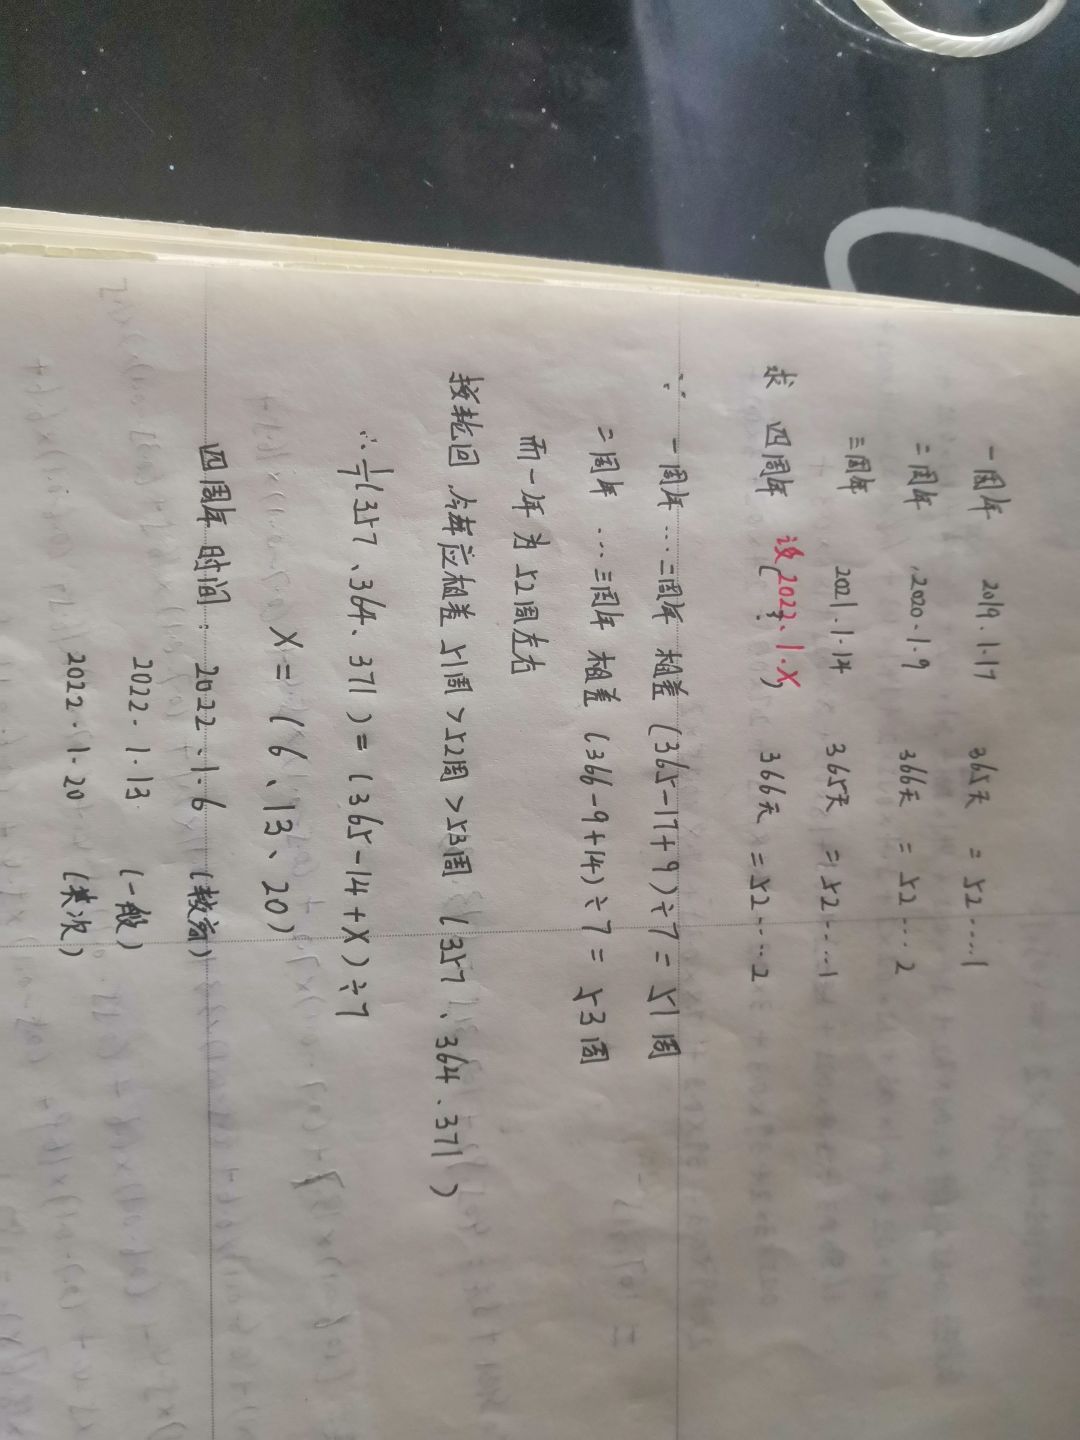 一周年 2019.1.17 365天 = 52····1
二周年 2020.1.9 366天 = 52···2
三周年 2021.1.14 365天 = 52····1
求 四周年 设2022.1.X (?) 366天 = 52···2
∵ 一周年…二周年 相差 (365-17+9)÷7 = 51周
二周年 …三周年 相差 (366-9+14)÷7 = 53周
而一年为52周左右
按轮回,今年应相差 51周>52周>53周 (357、364、371)
∴ 1/7(357、364、371) = (365-14+X)÷7
X = (6、13、20)
四周年时间: 2022.1.6 (较高)
2022.1.13 (一般)
2022.1.20 (其次)